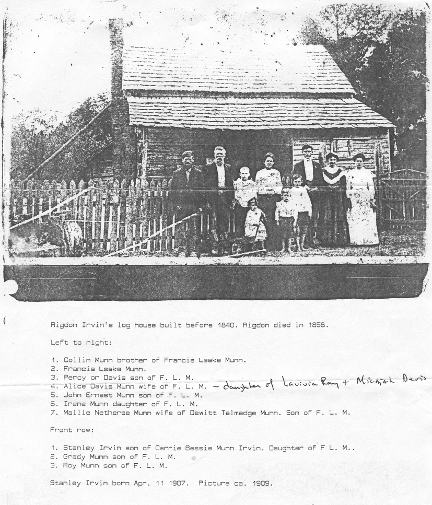 Rigdon Irvin's log house built before 1840. Rigdon died in 1856.
Left to right:
1. Collin Munn brother of Francis Leake Munn.
2. Francis Leake Munn.
3. Percy or Davis son of F. L. M.
4. Alice Davis Munn wife of F. L. M. - daughter of Lavinia Ray + Micajah Davis
5. John Ernest Munn son of F. L. M.
6. Irene Munn daughter of F. L. M.
7. Mollie Nethorse Munn wife of Dewitt Talmadge Munn. Son of F. L. M.
Front row:
1. Stanley Irvin son of Carrie Bessie Munn Irvin. Daughter of F L M..
2. Grady Munn son of F. L. M.
3. Roy Munn son of F. L. M.
Stanley Irvin born Apr. 11 1907. Picture ca. 1909.